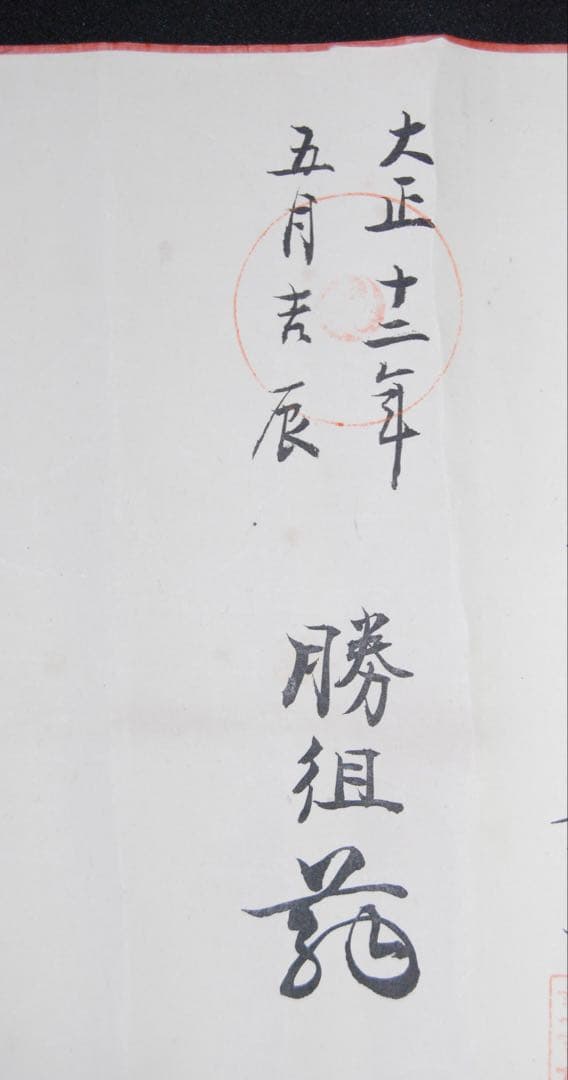 大正十二年
五月吉辰
勝徂